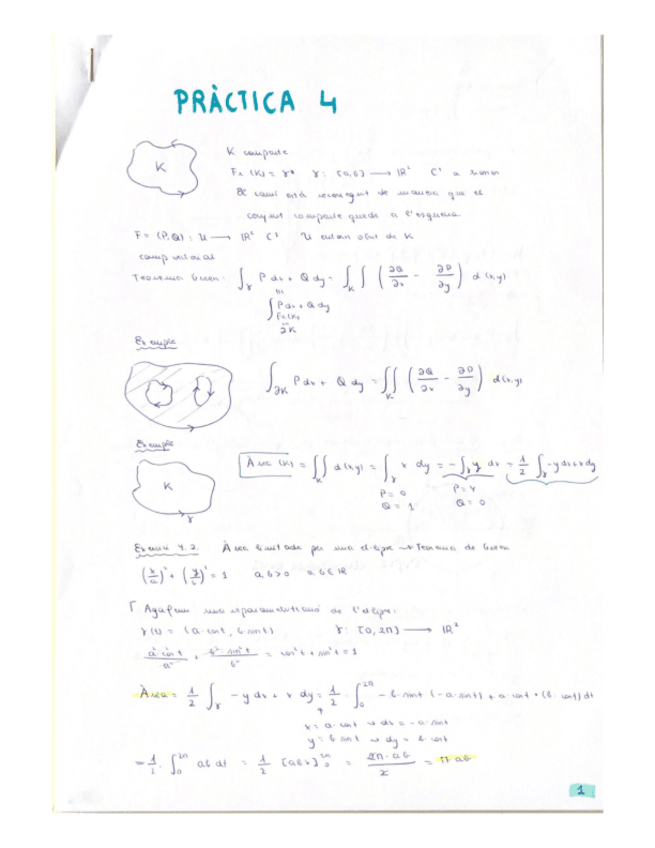 PRÀCTICA 4
K
K compacte
Fr (K) = γ* γ: [a,b] → ℝ² C¹ a trossos
El camí està recorregut de manera que el
conjunt compacte queda a l'esquerra
F = (P,Q): U → ℝ² C¹ U entorn obert de K
camp vectorial
Teorema Green: ∫_γ P dx + Q dy = ∫_K ∫ (∂Q/∂x - ∂P/∂y) d(x,y)
∫ P dx + Q dy
Fr(K)
∂K
Exemple
∫_∂K P dx + Q dy = ∬_K (∂Q/∂x - ∂P/∂y) d(x,y)
Exemple
K
γ
Àrea (K) = ∬_K d(x,y) = ∫_γ x dy = -∫_γ y dx = 1/2 ∫_γ -y dx + x dy
P = 0
Q = 1
Q = 0
Exercici 4.2. Àrea limitada per una el·lipse → Teorema de Green
(x/a)² + (y/b)² = 1 a,b > 0 a,b ∈ ℝ
Γ Agafem una reparametrització de l'el·lipse:
γ(t) = (a·cos t, b·sin t) γ: [0, 2π] → ℝ²
a² cos² t / a² + b² · sin² t / b² = cos² t + sin² t = 1
Àrea = 1/2 ∫_γ -y dx + x dy = 1/2 · ∫_0^2π -b·sin t (-a·sin t) + a·cos t · (b·cos t) dt
x = a·cos t → dx = -a·sin t
y = b sin t → dy = b·cos t
= 1/2 · ∫_0^2π ab dt = 1/2 [abt]_0^2π = 2π·ab / 2 = π ab
1